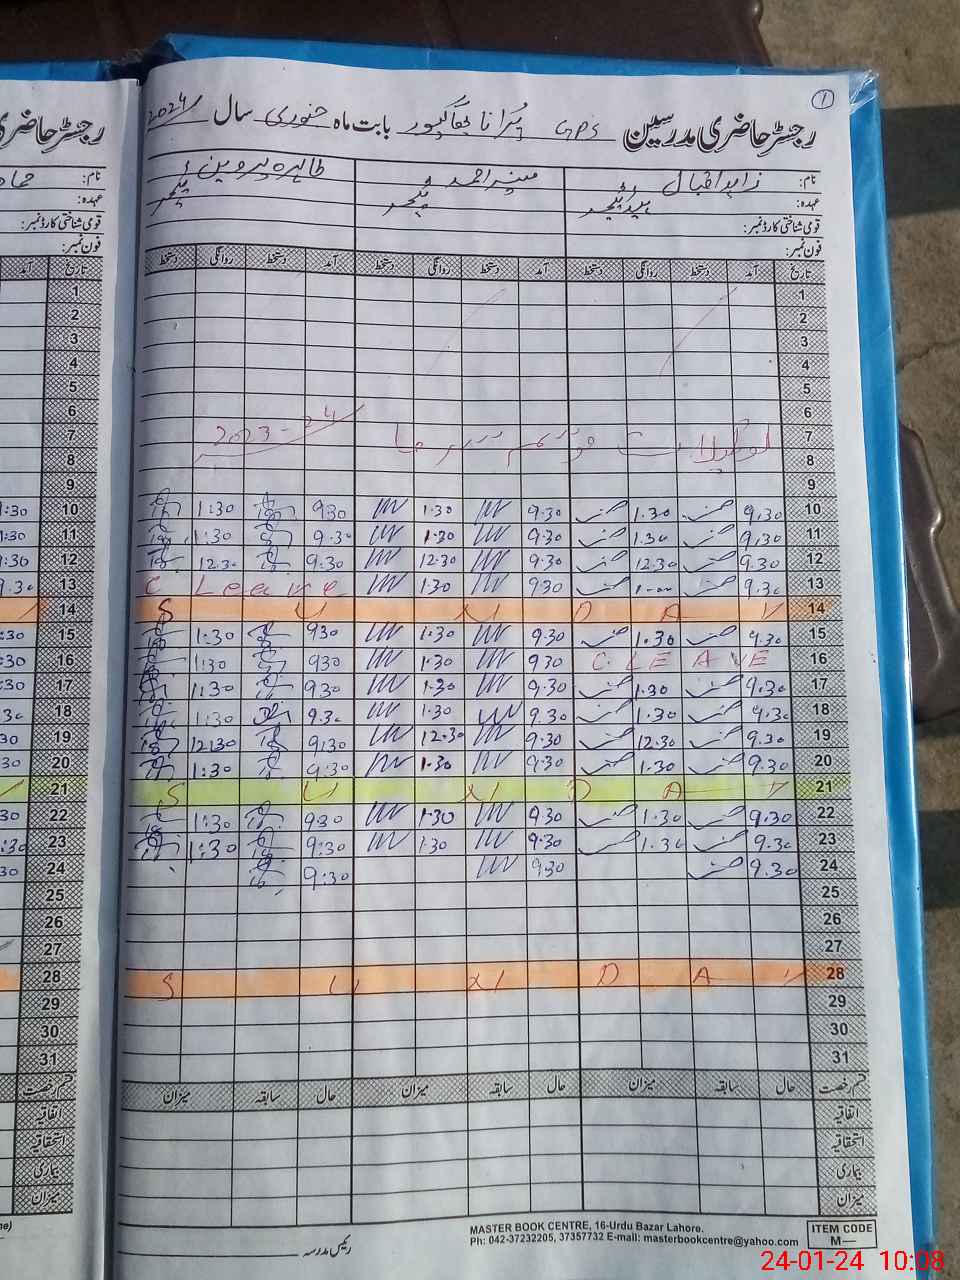 1
رجسٹر حاضری مدرسین GPS پرانا بھاگپور بابت ماہ جنوری سال 2024
نام: زاہد اقبال منیر احمد طاہرہ پروین
عہدہ: ہیڈ ٹیچر ٹیچر ٹیچر
قومی شناختی کارڈ نمبر:
فون نمبر:
تاریخ آمد دستخط روانگی دستخط آمد دستخط روانگی دستخط آمد دستخط روانگی دستخط
1
2
3
4
5
6
7 2023-24
8
9
10 9.30 1.30 9.30 1.30 9.30 1:30
11 9.30 1.30 9.30 1.30 9.30 1:30
12 9.30 12.30 9.30 12.30 9:30 12.30
13 9.30 9.30 1.30 C Leave
14 S U N D A Y
15 9.30 1.30 9.30 1.30 930 1:30
16 C. LEAVE 930 1.30 930 1:30
17 9.30 1.30 9.30 1.30 930 1:30
18 9.30 1.30 9.30 1.30 9.30 1:30
19 9.30 12.30 9.30 12.30 9.30 12.30
20 9.30 1.30 9.30 1.30 9.30 1:30
21 S U N D A Y
22 9.30 1.30 9.30 1.30 930 1:30
23 9.30 1.30 9.30 1.30 9:30 1:30
24 9.30 9.30 9:30
25
26
27
28 S U N D A Y
29
30
31
قسم رخصت حال سابقہ میزان حال سابقہ میزان حال سابقہ میزان
اتفاقیہ
استحقاقیہ
بیماری
میزان
رئیس مدرسہ
MASTER BOOK CENTRE, 16-Urdu Bazar Lahore.
Ph: 042-37232205, 37357732 E-mail: masterbookcentre@yahoo.com
ITEM CODE
M—
24-01-24 10:08